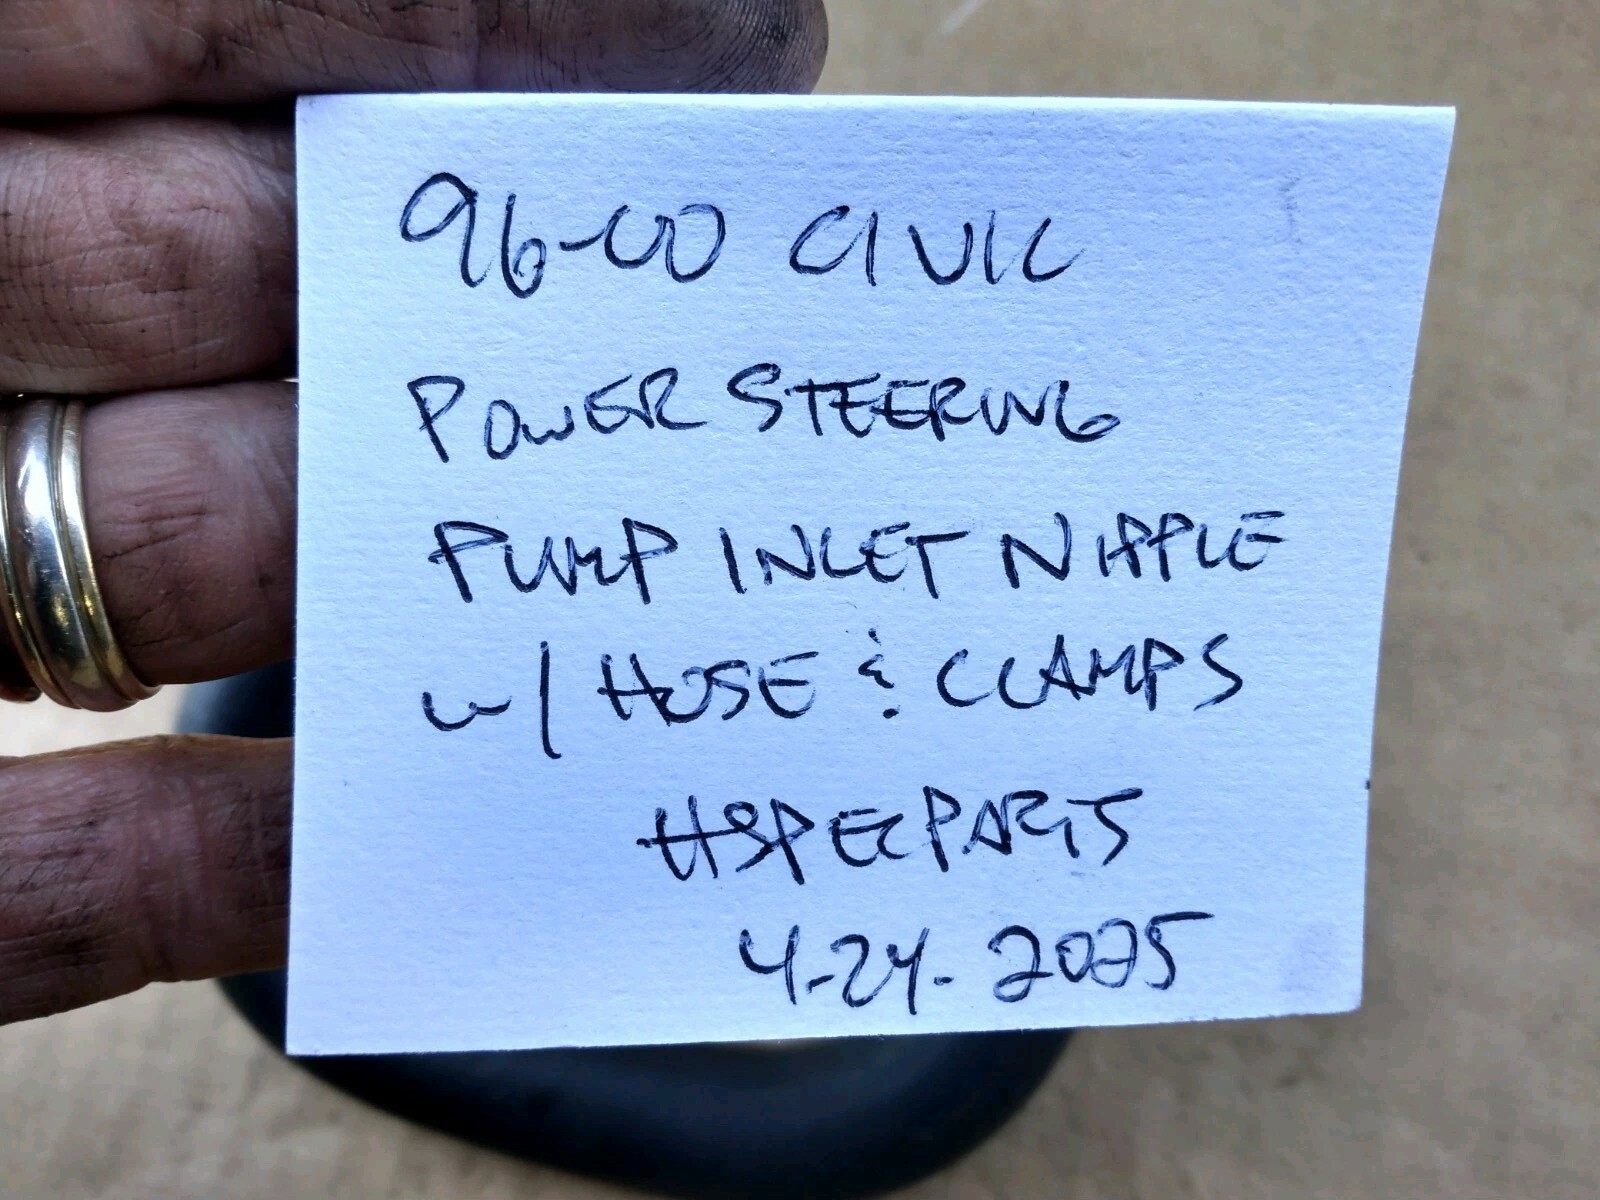 96-00 CIVIC
POWER STEERING
PUMP INLET NIPPLE
w/ HOSE & CLAMPS
HSPECPARTS
4-24-2025